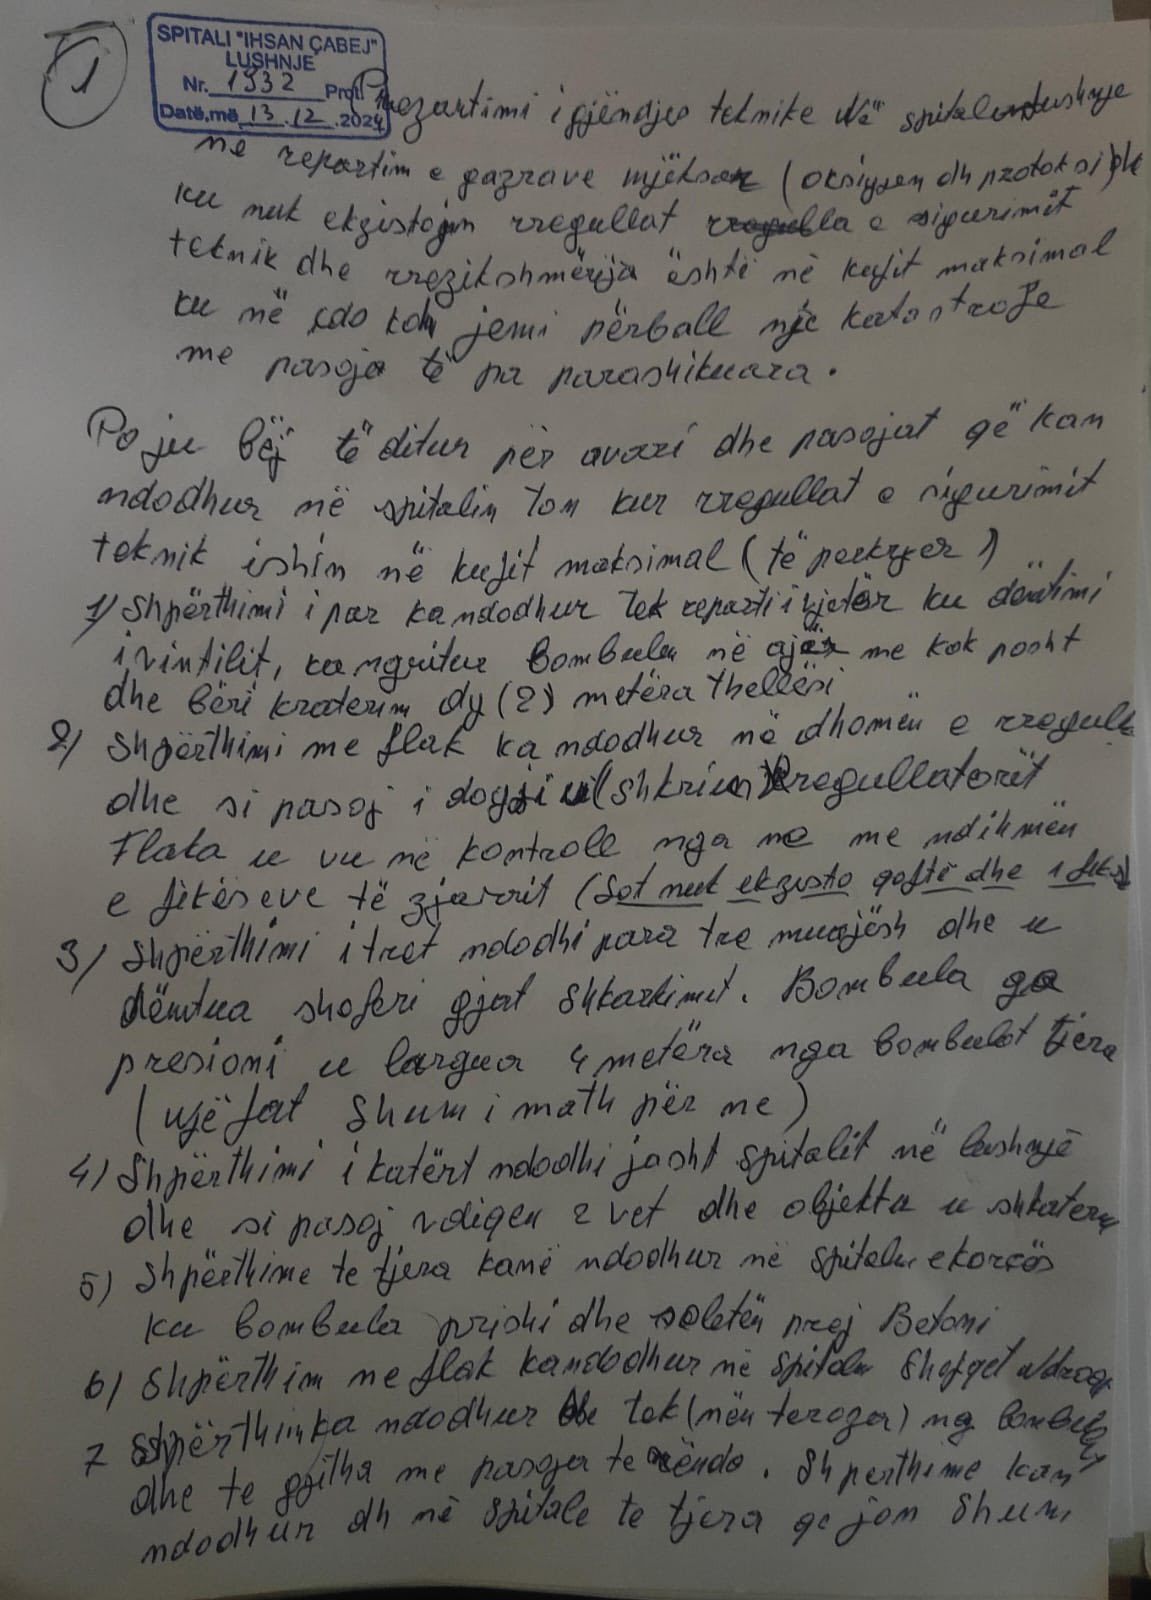 1
SPITALI "IHSAN ÇABEJ"
LUSHNJE
Nr. 1932 Prot.
Datë,më 13.12.2024
Prezantimi i gjëndjes teknike Në spitalin Lushnje
në repartin e gazrave mjëksor (oksigjen dh protoksi) dhe
ku nuk ekzistojn rregullat e sigurimit
teknik dhe rrezikshmërija është në kufit maksimal
ku në çdo koh jemi përball një katastrofe
me pasoja të pa parashikuara.
Po ju bëj të ditur për avari dhe pasojat që kan
ndodhur në spitalin ton kur rregullat e sigurimit
teknik ishin në kufit maksimal (të perkryer)
1) Shpërthimi i par ka ndodhur tek reparti i vjetër ku dëmtimi
i vintilit, ka ngritur bombulen në ajër me kok posht
dhe bëri kraterin dy (2) metëra thellësi
2) Shpërthimi me flak ka ndodhur në dhomën e rregull
dhe si pasoj i dogji (shkriu) rregullatorët
Flaka u vu në kontroll nga ne me ndihmën
e fikëseve të zjarrit (Sot nuk ekzisto qoftë dhe 1 fikës)
3) Shpërthimi i tret ndodhi para tre muajësh dhe u
dëmtua shoferi gjat shkarkimit. Bombula ga
presioni u largua 4 metëra nga bombulat tjera
(një fat shum i math për ne)
4) Shpërthimi i katërt ndodhi jasht spitalit në lushnjë
dhe si pasoj vdiqen 2 vet dhe objekti u shkaterru
5) Shpërthime te tjera kanë ndodhur në spitalin e korçës
ku bombula prishi dhe soletën prej Betoni
6) Shpërthim me flak ka ndodhur në spitalin Shefqet Ndroqi
7 Shpërthim ka ndodhur tek (nën teroza) ng bombulat
dhe te gjitha me pasoja te rënda. Shperthime kan
ndodhur dh në spitale te tjera qe jan shum